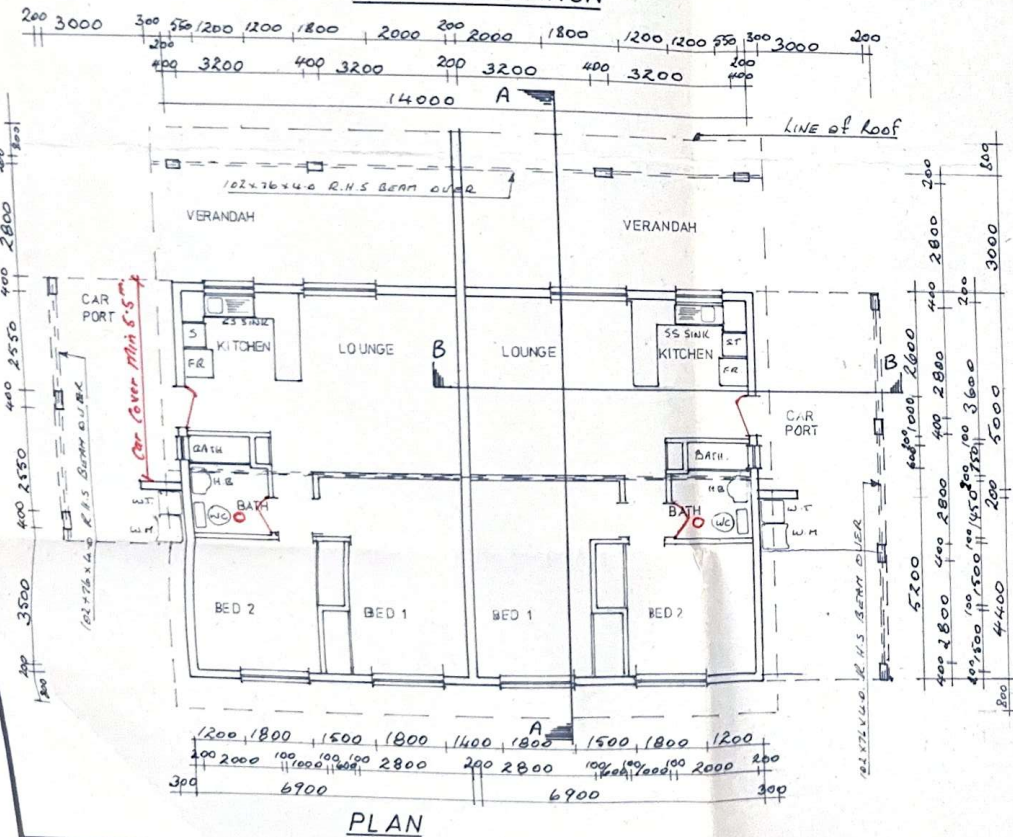 200 3000 300 550 1200 1200 1800 2000 200 2000 1800 1200 1200 550 300 3000 200
200 200
400 3200 400 3200 200 3200 400 3200 400
14000 A
LINE of ROOF
102x76x4.0 R.H.S BEAM OVER
VERANDAH
VERANDAH
CAR
PORT
Car Cover Min 5.5m.
SS SINK
KITCHEN
S
FR
LOUNGE
LOUNGE
SS SINK
KITCHEN
ST
FR
B
B
CAR
PORT
BATH
H.B
BATH
WC
W.T.
W.M
BATH.
H.B
BATH
WC
W.T
W.M
BED 2
BED 1
BED 1
BED 2
102x76x4.0 R.H.S BEAM OVER
102x76x4.0. R.H.S BEAM OVER
2800
400
2550
400
2550
400
3500
200
200
2800
400
2600
5200
2800
400
2800
400
2800
400
800
3000
200
3600
5000
200
4400
800
A
1200 1800 1500 1800 1400 1800 1500 1800 1200
200 2000 100 1000 100 600 100 2800 200 2800 100 600 100 1000 100 2000 200
300 6900 6900 300
PLAN